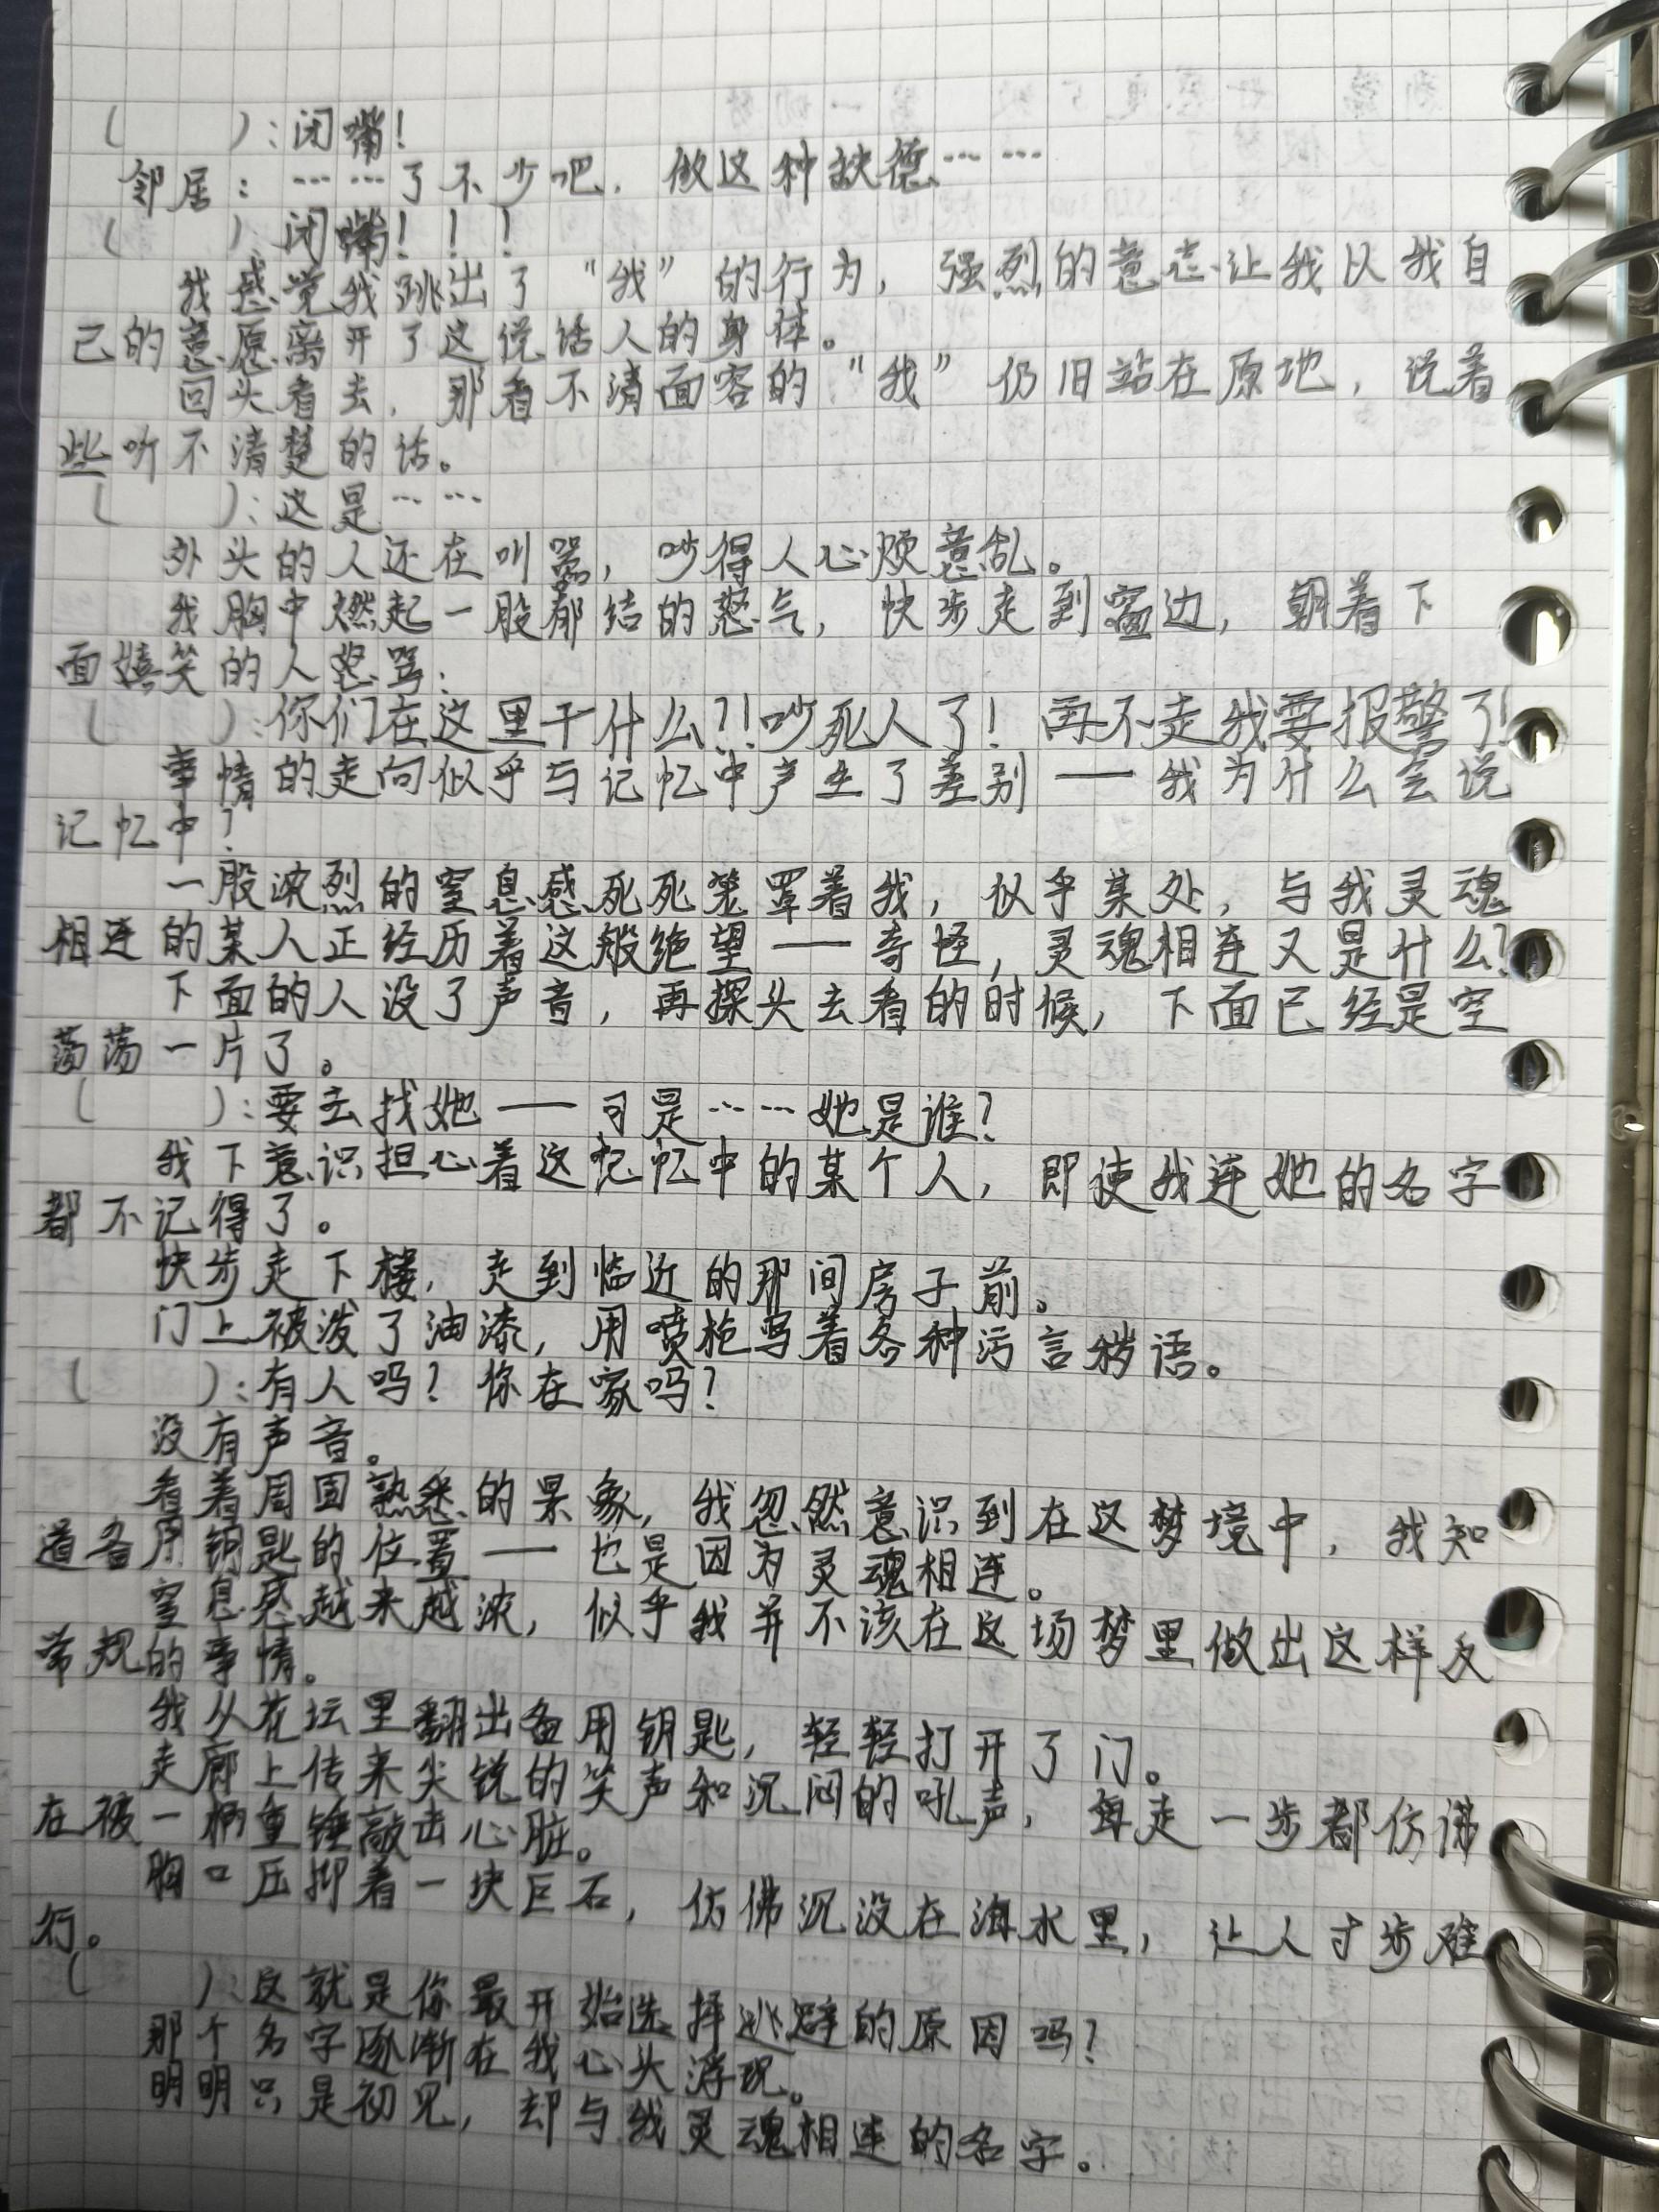 (    ):闭嘴!
邻居:……了不少吧,做这种缺德……
(    )闭嘴!!!
我感觉我跳出了“我”的行为,强烈的意志让我以我自
己的意愿离开了这说话人的身体。
回头看去,那看不清面容的“我”仍旧站在原地,说着
些听不清楚的话。
(    ):这是……
外头的人还在叫嚣,吵得人心烦意乱。
我胸中燃起一股郁结的怒气,快步走到窗边,朝着下
面嬉笑的人怒骂:
(    ):你们在这里干什么?!吵死人了!再不走我要报警了!
事情的走向似乎与记忆中产生了差别——我为什么会说
记忆中?
一股浓烈的窒息感死死笼罩着我,似乎某处,与我灵魂
相连的某人正经历着这般绝望——奇怪,灵魂相连又是什么?
下面的人没了声音,再探头去看的时候,下面已经是空
荡荡一片了。
(    ):要去找她——可是……她是谁?
我下意识担心着这记忆中的某个人,即使我连她的名字
都不记得了。
快步走下楼,走到临近的那间房子前。
门上被泼了油漆,用喷枪写着各种污言秽语。
(    ):有人吗?你在家吗?
没有声音。
看着周围熟悉的景象,我忽然意识到在这梦境中,我知
道备用钥匙的位置——也是因为灵魂相连。
窒息感越来越浓,似乎我并不该在这场梦里做出这样反
常规的事情。
我从花坛里翻出备用钥匙,轻轻打开了门。
走廊上传来尖锐的笑声和沉闷的吼声,每走一步都仿佛
在被一柄重锤敲击心脏。
胸口压抑着一块巨石,仿佛沉没在海水里,让人寸步难
行。
(    ):这就是你最开始选择逃避的原因吗?
那个名字逐渐在我心头浮现。
明明只是初见,却与我灵魂相连的名字。